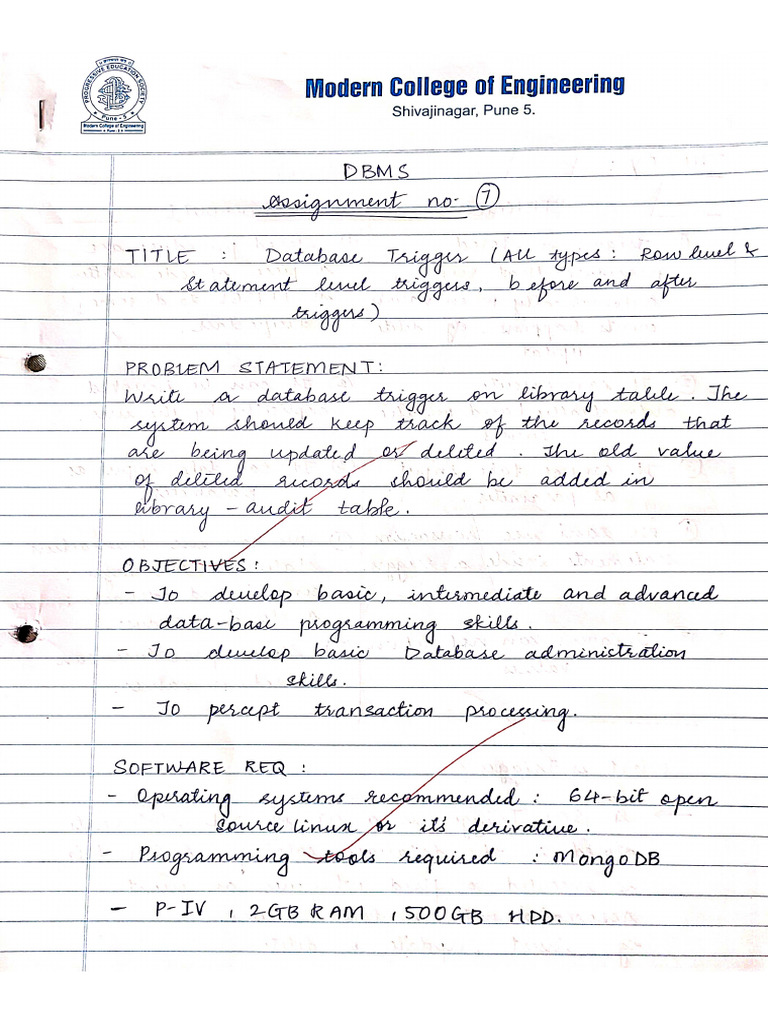 PROGRESSIVE EDUCATION SOCIETY
Pune - 5
Modern College of Engineering
Pune - 5
Modern College of Engineering
Shivajinagar, Pune 5.
DBMS
Assignment no- 7
TITLE : Database Trigger (All types: Row level &
Statement level triggers, before and after
triggers)
PROBLEM STATEMENT:
Write a database trigger on library table. The
system should keep track of the records that
are being updated or deleted. The old value
of deleted records should be added in
library - audit table.
OBJECTIVES:
- To develop basic, intermediate and advanced
data-base programming skills.
- To develop basic Database administration
skills.
- To percept transaction processing.
SOFTWARE REQ :
- Operating systems recommended : 64-bit open
source linux or it's derivative.
- Programming tools required : MongoDB
- P-IV , 2GB RAM , 500GB HDD.